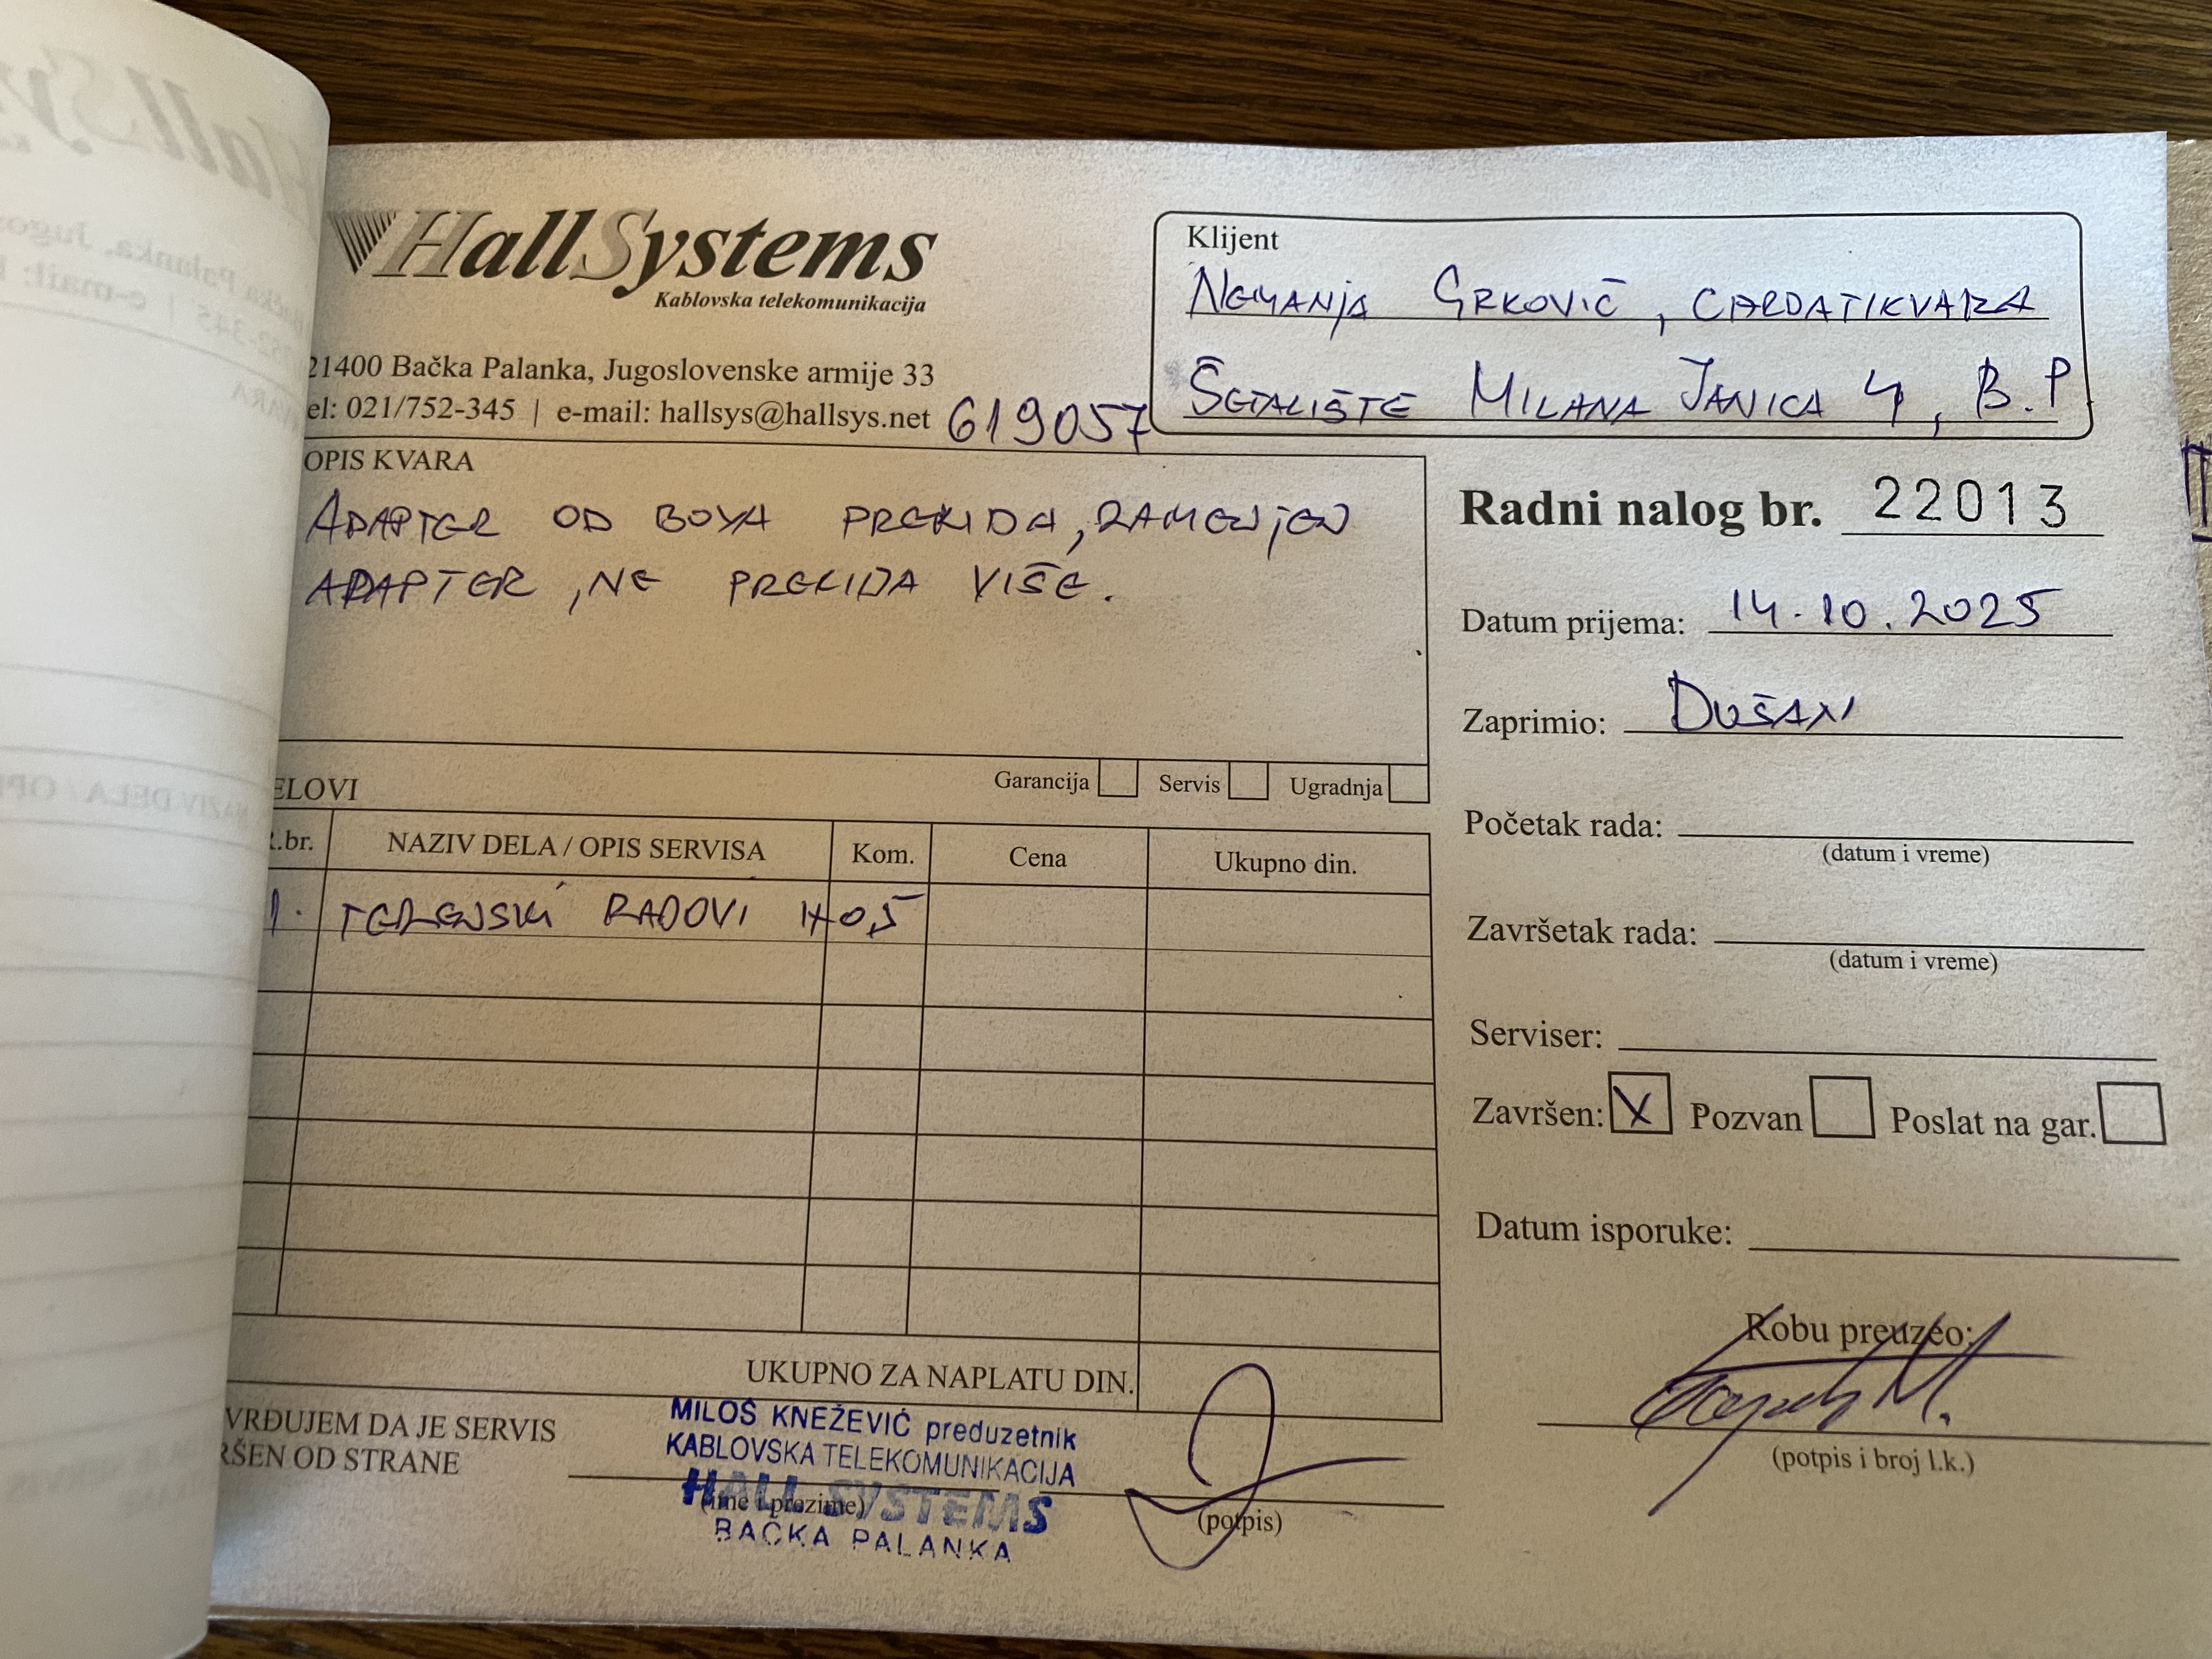 HallSystems
Kablovska telekomunikacija
21400 Bačka Palanka, Jugoslovenske armije 33
el: 021/752-345 | e-mail: hallsys@hallsys.net 619057
Klijent
NEMANJA GRKOVIĆ, CARDATIKVARA
ŠETALIŠTE MILANA JANIĆA 4, B.P
OPIS KVARA
ADAPTER OD BOXA PREKIDA, ZAMENJEN
ADAPTER, NE PREKIDA VIŠE.
Garancija Servis Ugradnja
Radni nalog br. 22013
Datum prijema: 14.10.2025
Zaprimio: DUŠAN
Početak rada:
(datum i vreme)
Završetak rada:
(datum i vreme)
Serviser:
Završen: X Pozvan Poslat na gar.
Datum isporuke:
Robu preuzeo:
(potpis i broj l.k.)
ELOVI
.br. NAZIV DELA / OPIS SERVISA Kom. Cena Ukupno din.
1. TERENSKI RADOVI H 0,5
UKUPNO ZA NAPLATU DIN.
VRĐUJEM DA JE SERVIS
RŠEN OD STRANE
MILOŠ KNEŽEVIĆ preduzetnik
KABLOVSKA TELEKOMUNIKACIJA
HALL SYSTEMS
(ime i prezime)
BAČKA PALANKA
(potpis)